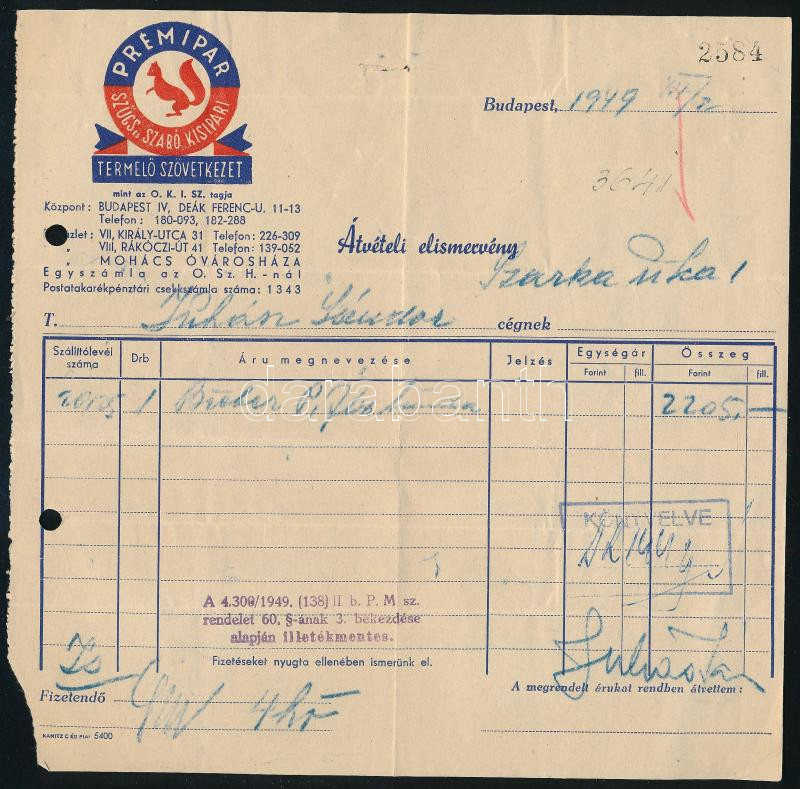 PRÉMIPAR
SZŰCS és SZABÓ KISIPARI
TERMELŐ SZÖVETKEZET
mint az O. K. I. SZ. tagja
Központ: BUDAPEST IV, DEÁK FERENC-U. 11-13
Telefon: 180-093, 182-288
zlet: VII, KIRÁLY-UTCA 31 Telefon: 226-309
„ VIII, RÁKÓCZI-ÚT 41 Telefon: 139-052
„ MOHÁCS ÓVÁROSHÁZA
Egyszámla az O. Sz. H.-nál
Postatakarékpénztári csekkszámla száma: 1343
2584
Budapest, 1949 VII/2
3641
Átvételi elismervény
Szarka
T. Juhász Sándor cégnek
Szállítólevél száma Drb Áru megnevezése Jelzés Egységár Összeg
Forint fill. Forint fill.
1 2205.—
darabanth
KÖNYVELVE
A 4.300/1949. (138) II b. P. M sz.
rendelet 60. §-ának 3. bekezdése
alapján illetékmentes.
Fizetéseket nyugta ellenében ismerünk el.
Fizetendő 4 hó
A megrendelt árukat rendben átvettem:
KANITZ C ÉS FIAI 5400